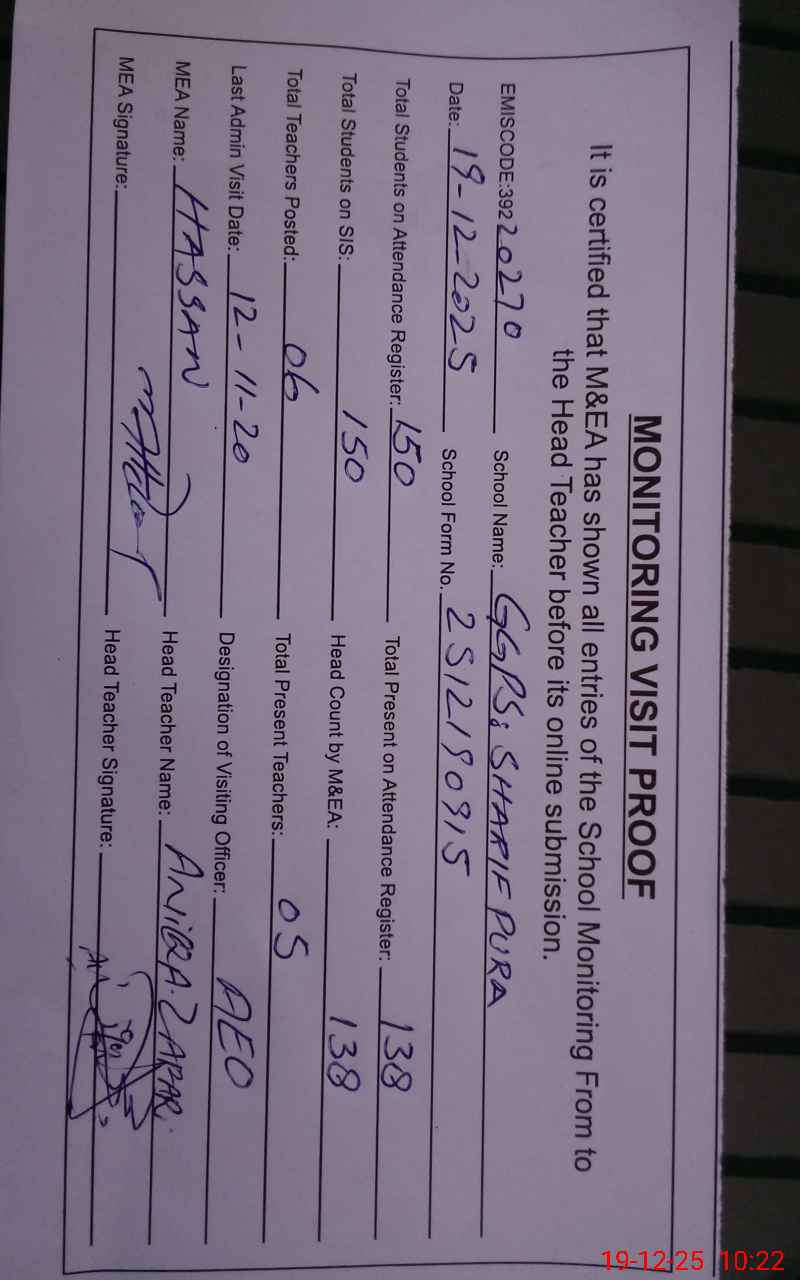 MONITORING VISIT PROOF
It is certified that M&EA has shown all entries of the School Monitoring From to
the Head Teacher before its online submission.
EMISCODE:39220270 School Name: GGPS: SHARIF PURA
Date: 19-12-2025 School Form No. 2512190915
Total Students on Attendance Register: 150 Total Present on Attendance Register: 138
Total Students on SIS: 150 Head Count by M&EA: 138
Total Teachers Posted: 06 Total Present Teachers: 05
Last Admin Visit Date: 12-11-20 Designation of Visiting Officer: AEO
MEA Name: HASSAN Head Teacher Name: ANIQA ZAFAR
MEA Signature: Head Teacher Signature:
19-12-25 10:22